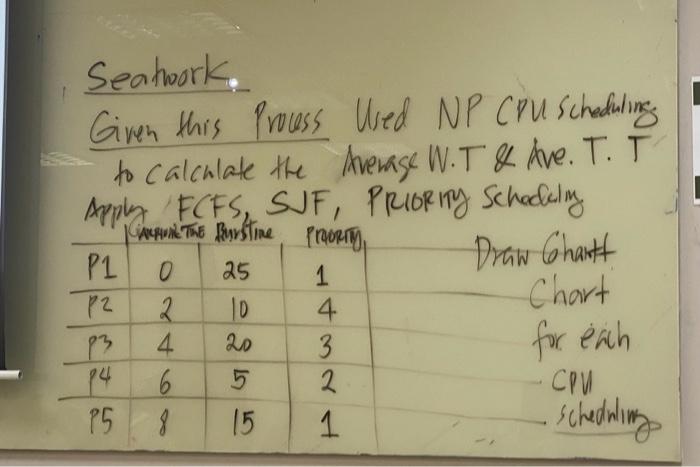 Seatwork.
Given this Process Used NP CPU Scheduling
to calculate the Average W.T & Ave. T. T
Apply FCFS, SJF, PRIORITY Scheduling
ARRIVAL TIME Burst time PRIORITY
P1 0 25 1
P2 2 10 4
P3 4 20 3
P4 6 5 2
P5 8 15 1
Draw Ghantt
Chart
for each
CPU
scheduling